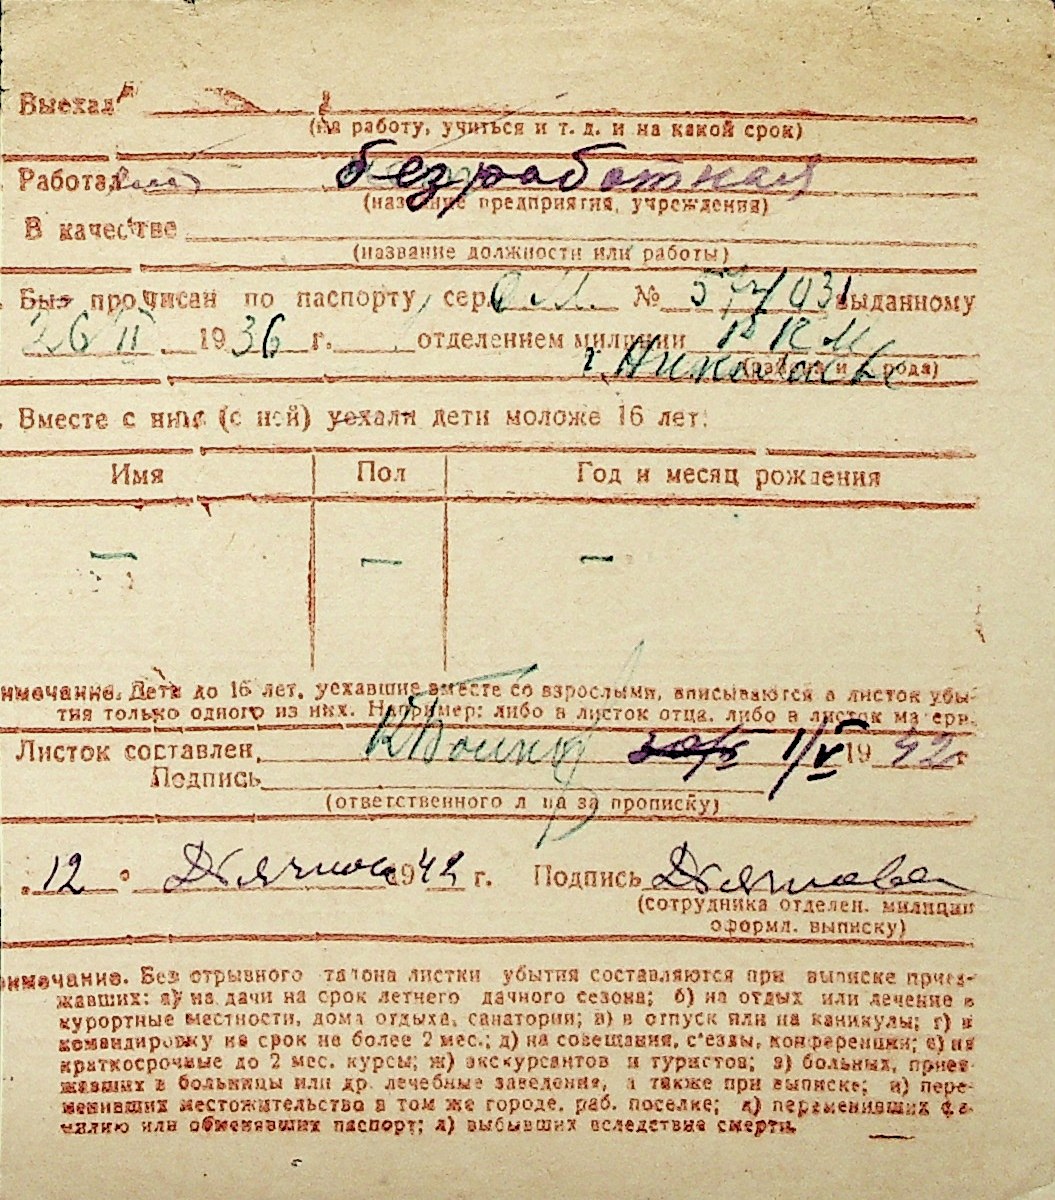 Выехал
(на работу, учиться и т. д. и на какой срок)
Работал безработная
(название предприятия, учреждения)
В качестве
(название должности или работы)
Был прописан по паспорту, сер. № выданному
26 II 1936 г. отделением милиции РКМ
г. Николаев
(района и города)
Вместе с ним (с ней) уехали дети моложе 16 лет:
Имя Пол Год и месяц рождения
— — —
Примечание. Дети до 16 лет, уехавшие вместе со взрослыми, вписываются в листок убы-
тия только одного из них. Например: либо в листок отца, либо в листок матери.
Листок составлен 1/V 1942г
Подпись
(ответственного лица за прописку)
12 1942 г. Подпись
(сотрудника отделен. милиции
оформл. выписку)
Примечание. Без отрывного талона листки убытия составляются при выписке приез-
жавших: а) на дачи на срок летнего дачного сезона; б) на отдых или лечение в
курортные местности, дома отдыха, санатории; в) в отпуск или на каникулы; г) в
командировку на срок не более 2 мес.; д) на совещания, с'езды, конференции; е) на
краткосрочные до 2 мес. курсы; ж) экскурсантов и туристов; з) больных, приез-
жавших в больницы или др. лечебные заведения, а также при выписке; и) пере-
менивших местожительство в том же городе, раб. поселке; к) переменивших фа-
милию или обменявших паспорт; л) выбывших вследствие смерти.